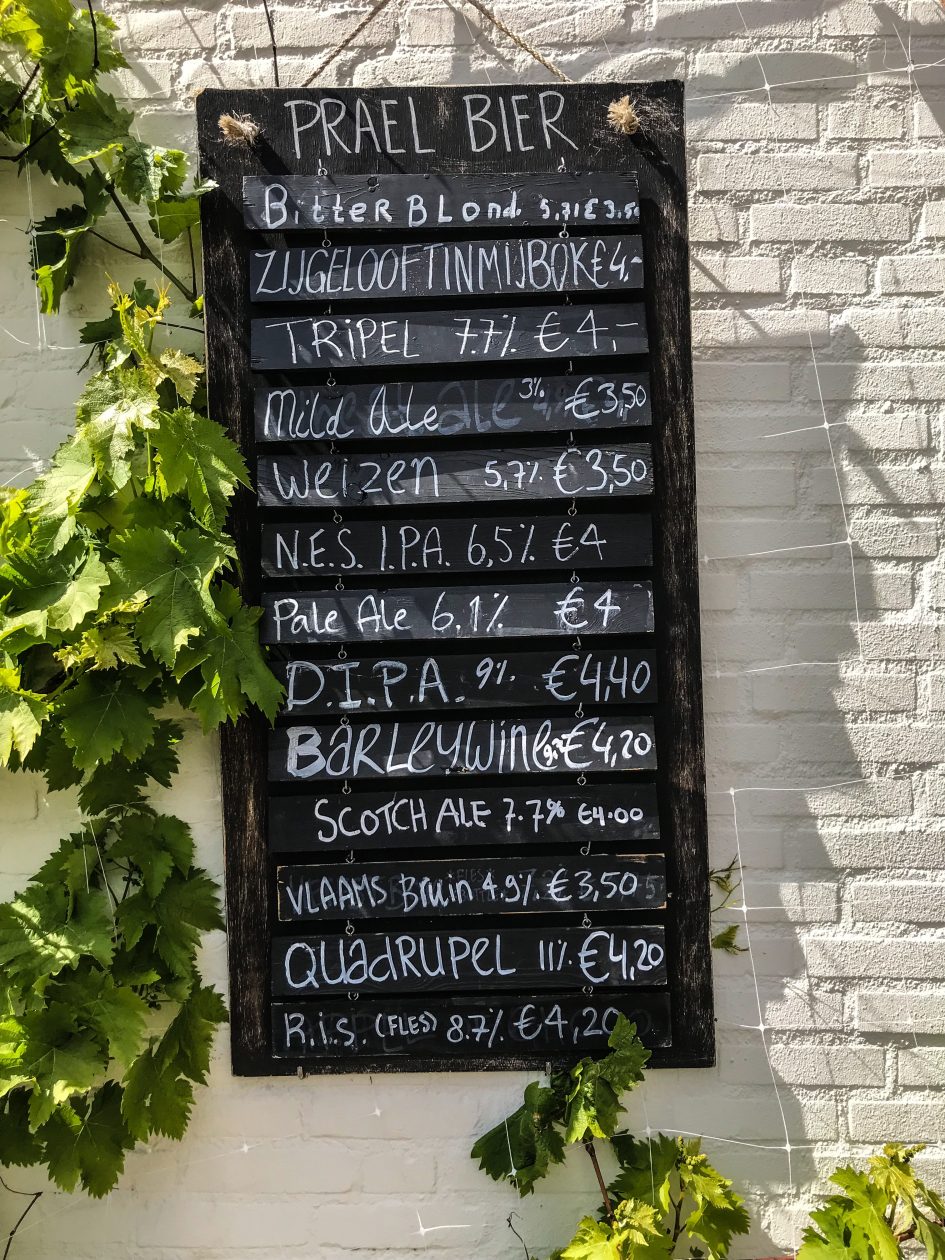 PRAEL BIER
BitterBLOnd 5,71 € 3.50
ZIJGELOOFTINMIJBOK €4,-
TRiPEL 7.7% €4,-
Mild Ale 3% €3,50
Weizen 5,7% €3,50
N.E.S. I.P.A. 6,5% €4
Pale Ale 6.1% €4
D.I.P.A. 9% €4,40
BARLeyWinE €4,20
SCOTCH ALE 7.7% €4.00
VLAAMS Bruin 4.9% €3,50
QUAdRUPEL 11% €4,20
R.i.s. (FLES) 8.7% €4,20